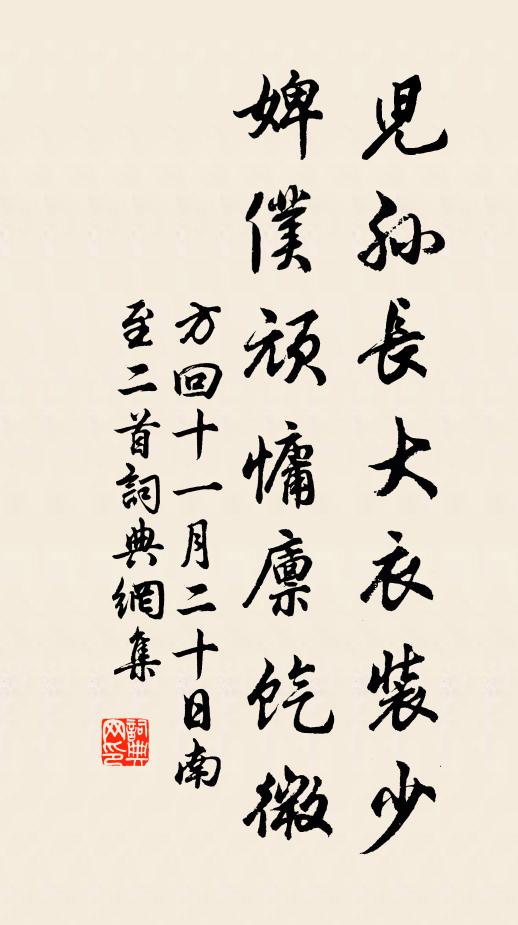 兒孫長大衣裝少
婢僕頑慵廩餼微
方回十一月二十日南
至二首詞典網集
詞典
网印